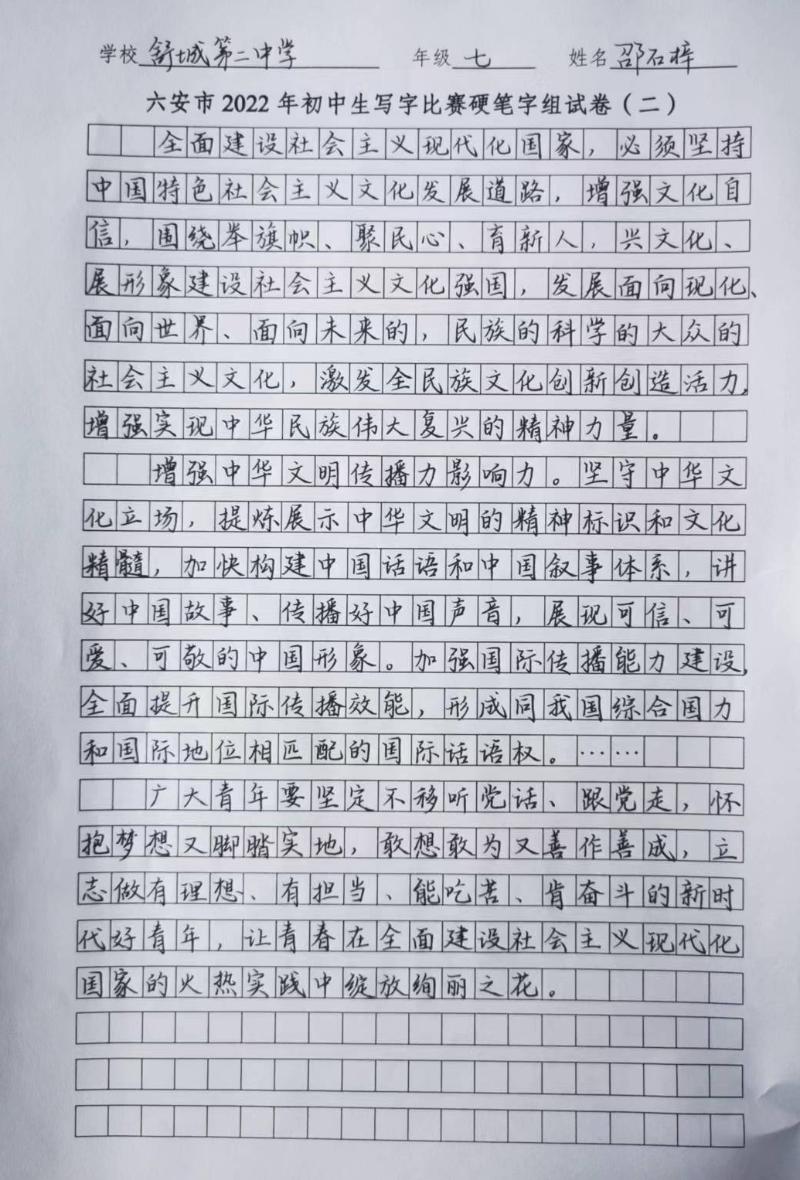 学校 舒城第二中学 年级 七 姓名 邵石梓
六安市2022年初中生写字比赛硬笔字组试卷（二）
全面建设社会主义现代化国家，必须坚持
中国特色社会主义文化发展道路，增强文化自
信，围绕举旗帜、聚民心、育新人，兴文化、
展形象建设社会主义文化强国，发展面向现化、
面向世界、面向未来的，民族的科学的大众的
社会主义文化，激发全民族文化创新创造活力，
增强实现中华民族伟大复兴的精神力量。
增强中华文明传播力影响力。坚守中华文
化立场，提炼展示中华文明的精神标识和文化
精髓，加快构建中国话语和中国叙事体系，讲
好中国故事、传播好中国声音，展现可信、可
爱、可敬的中国形象。加强国际传播能力建设，
全面提升国际传播效能，形成同我国综合国力
和国际地位相匹配的国际话语权。……
广大青年要坚定不移听党话、跟党走，怀
抱梦想又脚踏实地，敢想敢为又善作善成，立
志做有理想、有担当、能吃苦、肯奋斗的新时
代好青年，让青春在全面建设社会主义现代化
国家的火热实践中绽放绚丽之花。